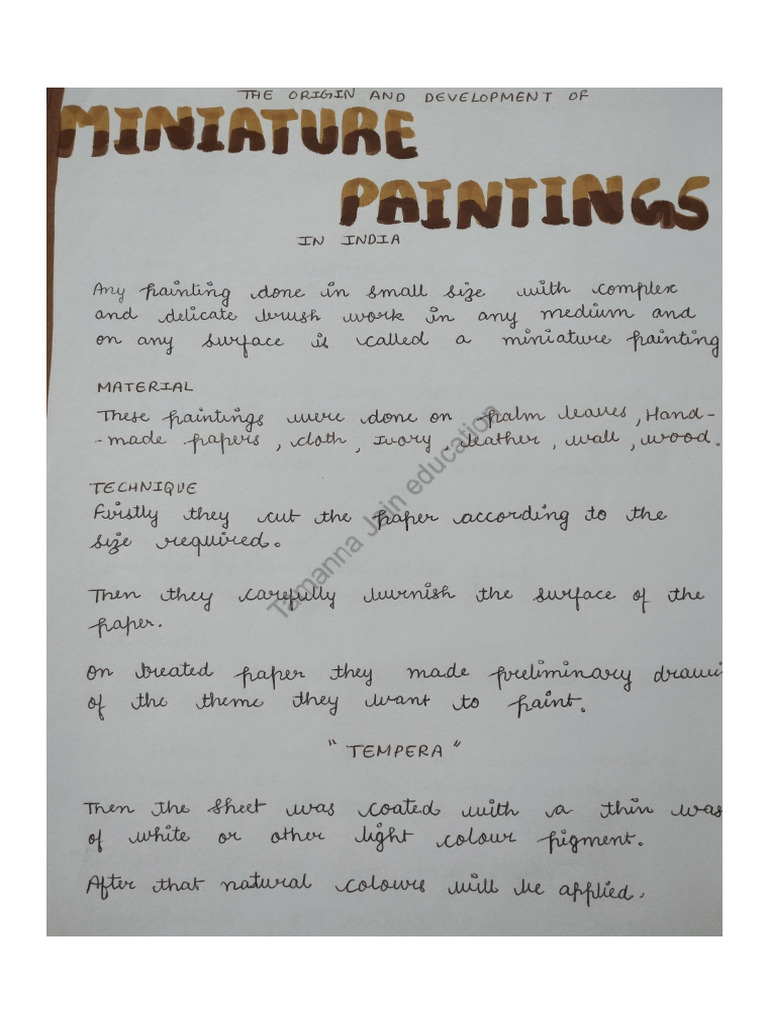 THE ORIGIN AND DEVELOPMENT OF
MINIATURE
PAINTINGS
IN INDIA
Any painting done in small size with complex
and delicate brush work in any medium and
on any surface is called a miniature painting
MATERIAL
These paintings were done on palm leaves, Hand-
-made papers, cloth, Ivory, leather, wall, wood.
TECHNIQUE
Firstly they cut the paper according to the
size required.
Then they carefully burnish the surface of the
paper.
On treated paper they made preliminary
of the theme they want to paint.
"TEMPERA"
Then the sheet was coated with a thin
of white or other light colour pigment.
After that natural colours will be applied.
Tamanna Jain education